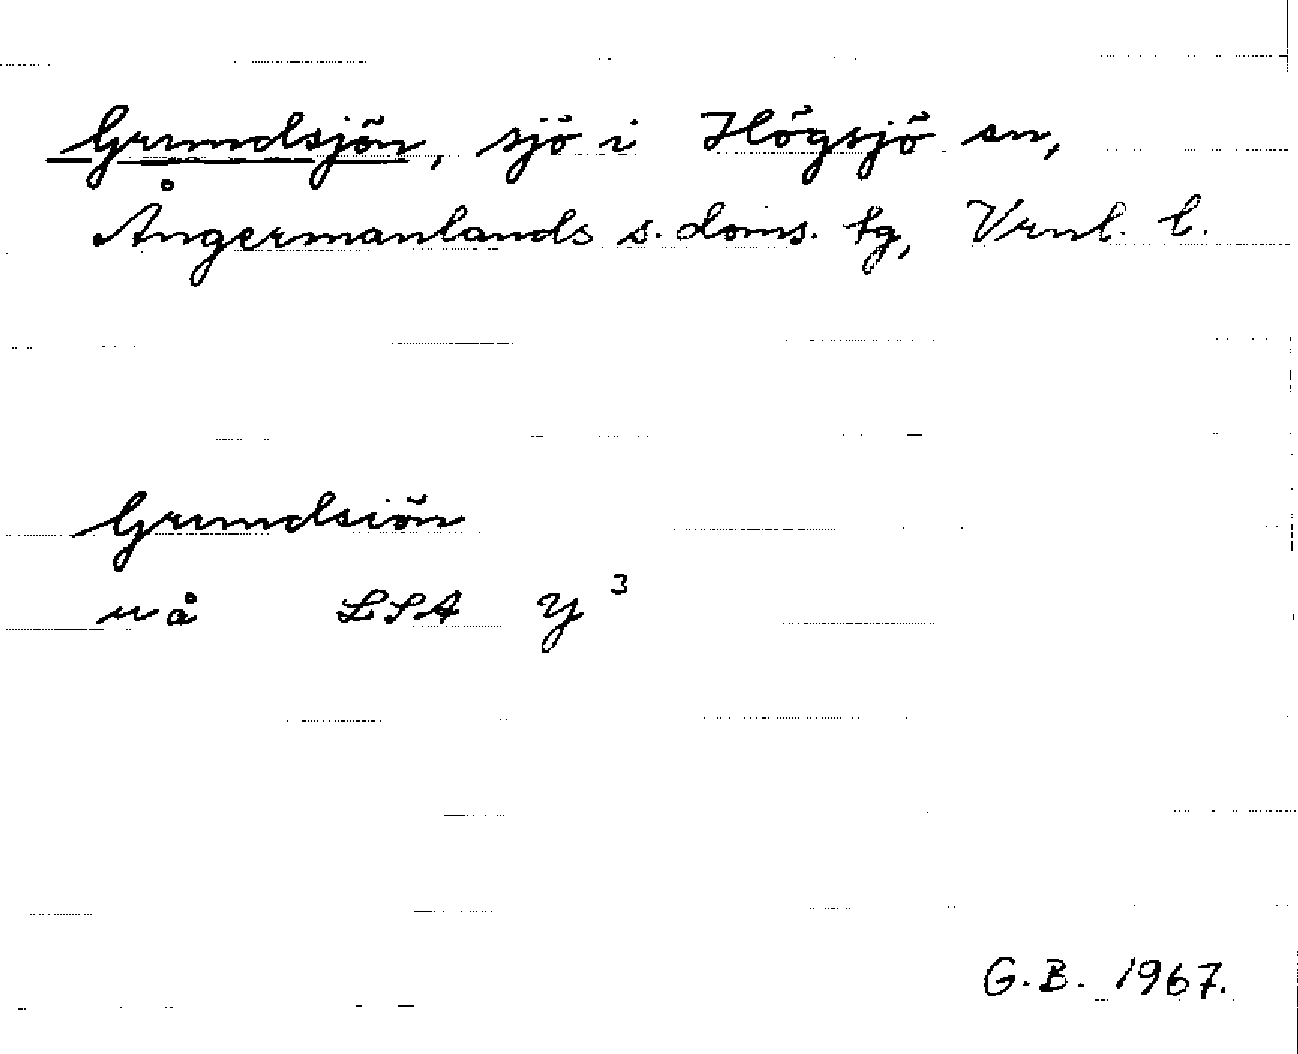 Grundsjön, sjö i Högsjö sn,
Ångermanlands s. doms. tg, Vrnl. l.
Grundsiön
uå LSA Y³
G.B. 1967.